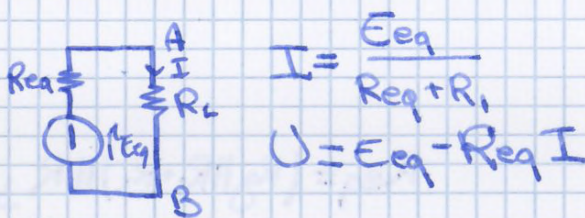 A
I
Req
R₁
Eeq
B
I = Eeq / Req + R₁
U = Eeq - Req I